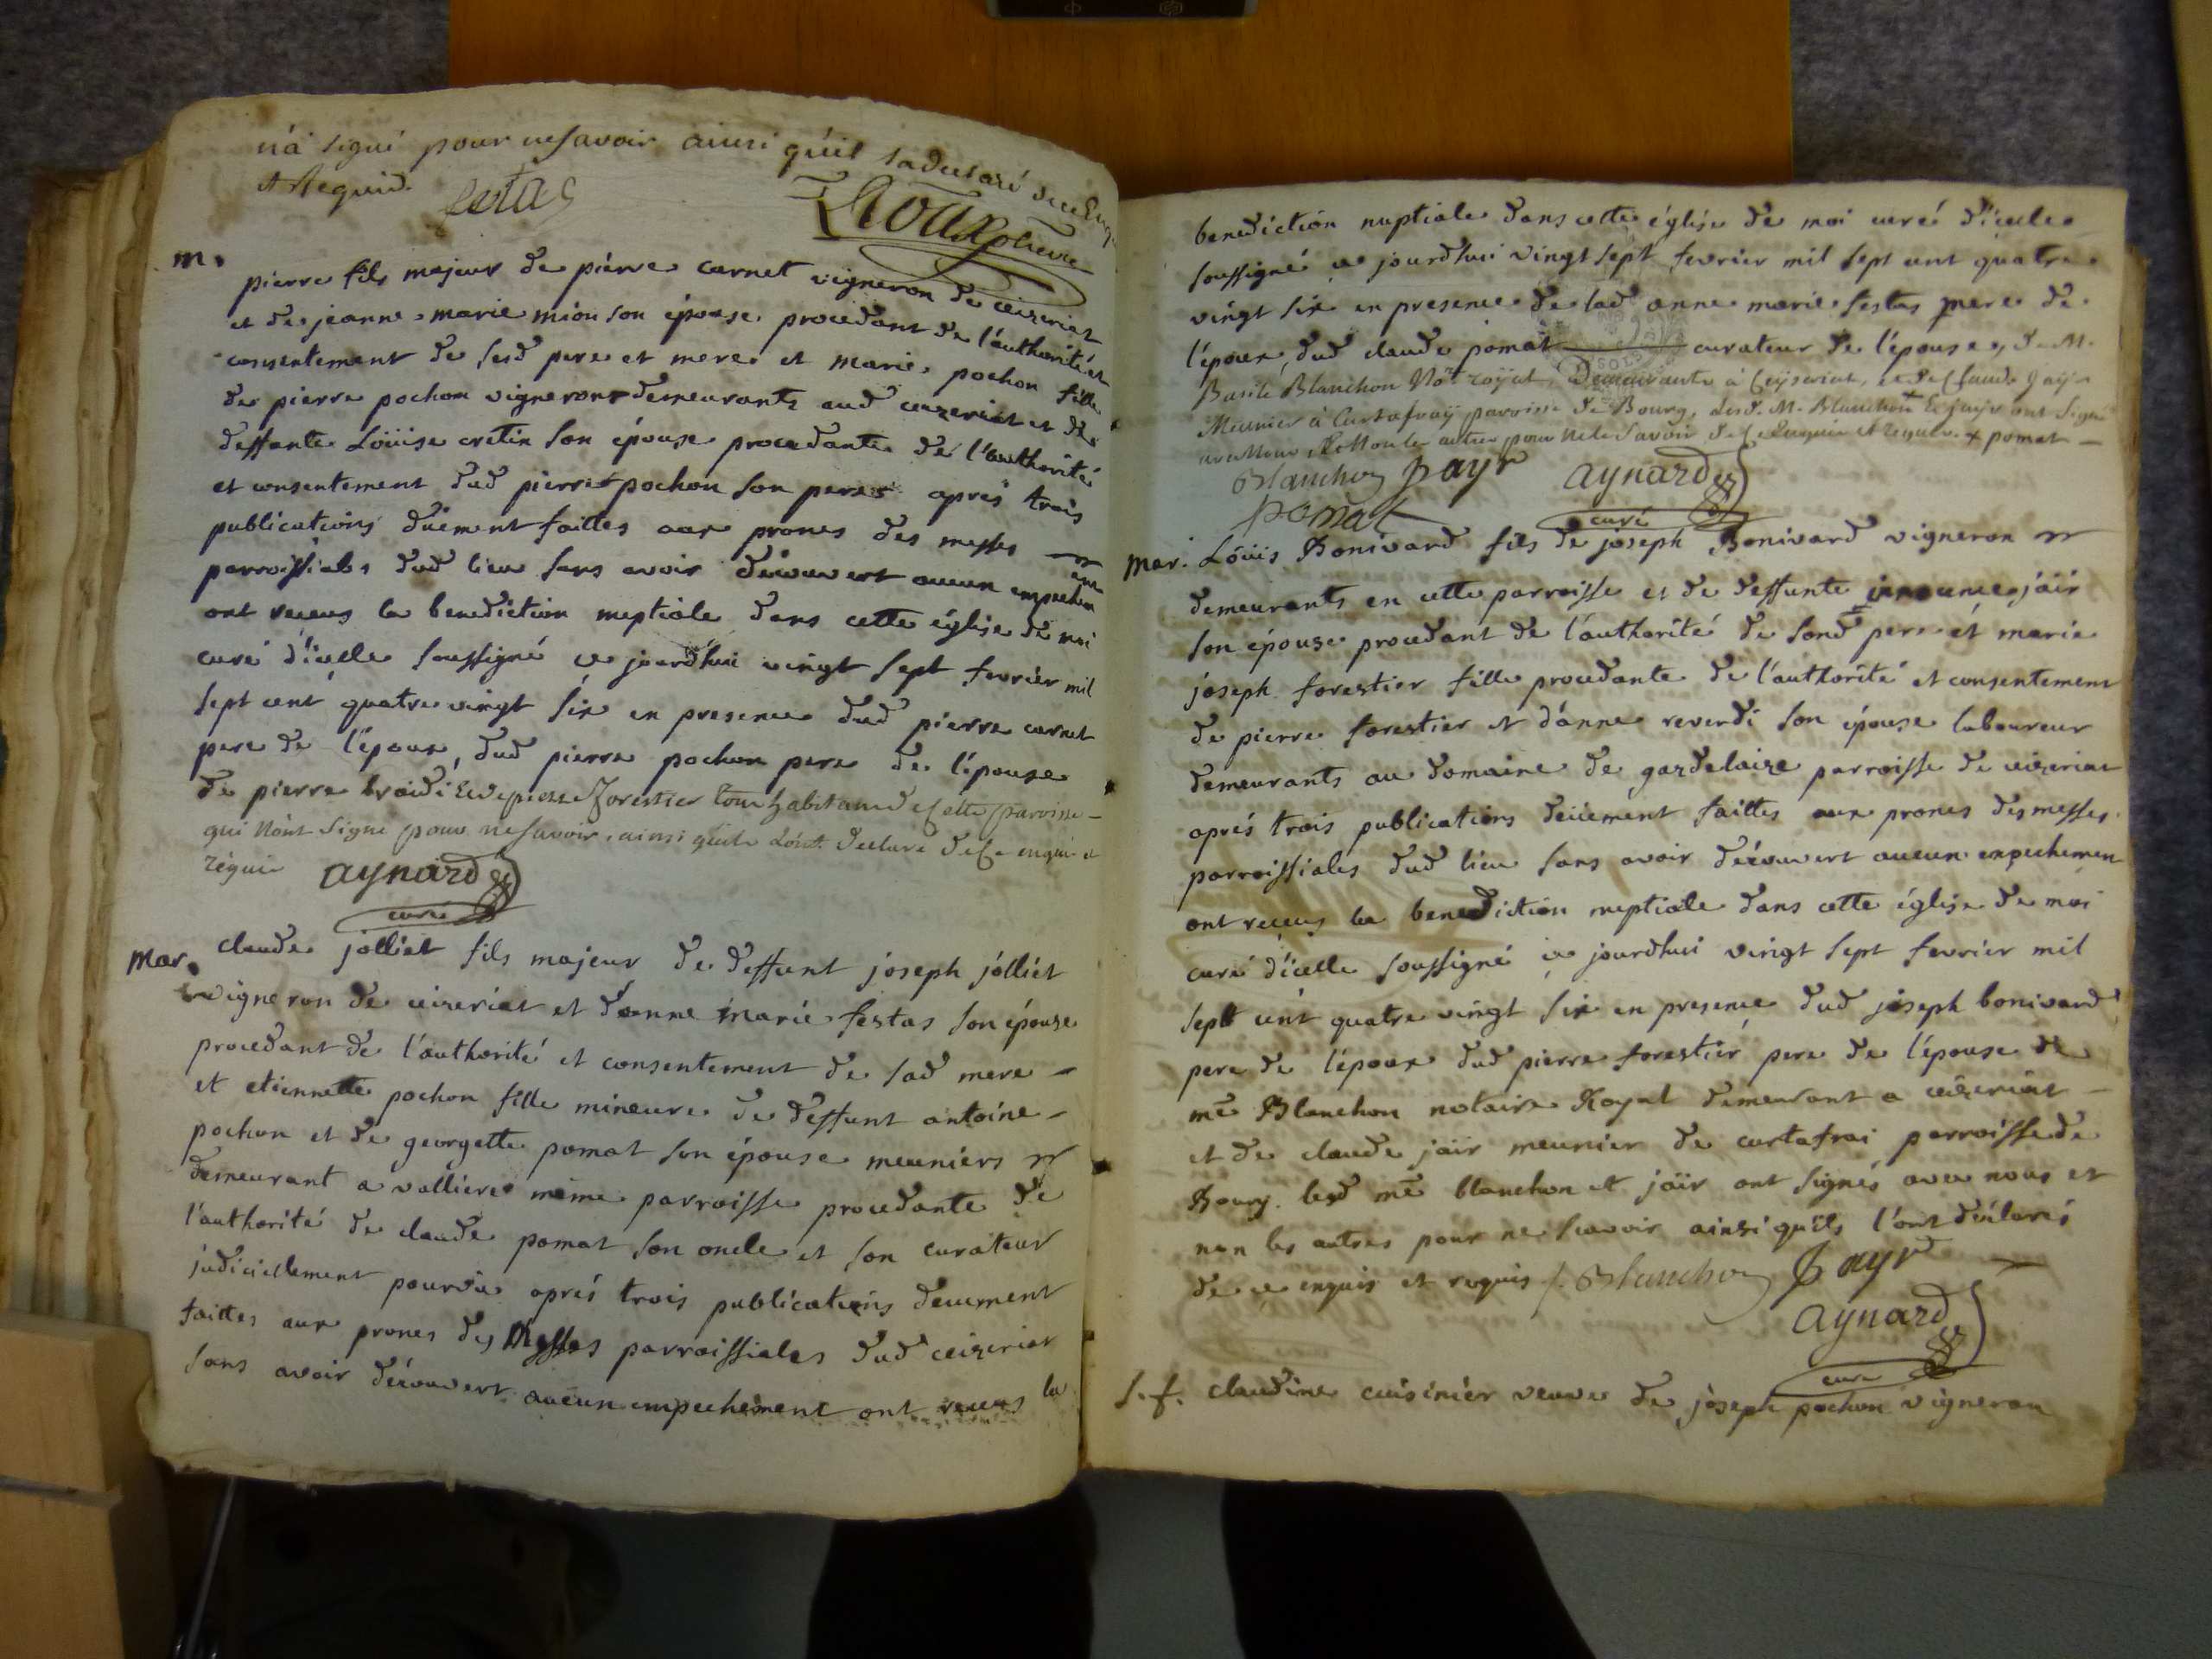 n'a signé pour ne savoir ainsi qu'il la declaré de ce Enq
et Requis. festas Roux
m. pierre fils majeur de pierre carnet vigneron de ceizeriat
et de jeanne marie mion son épouse procedant de l'authorité et
consentement de sesd pere et mere et marie pochon fille
de pierre pochon vignerons demeurants aud ceizeriat et de
deffante Loüise cretin son épouse procedante de l'authorité
et consentement dud pierre pochon son pere aprés trois
publications düement faittes aux prones des messes
parroissiales dud lieu sans avoir découvert aucun empechem
ont receus la benediction nuptiale dans cette église de moi
curé d'icelle soussigné ce jourd'hui vingt sept fevrier mil
sept cent quatre vingt six en presence dud pierre carnet
pere de l'époux, dud pierre pochon pere de l'épouse
de pierre braidi Et de pierre forestier tous habitans de Cette paroisse
qui Nont Signé pour ne Savoir, ainsi quils Lont declaré de Ce enquis et
réquis aynard
curé
Mar. claude jolliet fils majeur de deffunt joseph jolliet
vigneron de ceizeriat et d'anne marie festas son épouse
procedant de l'authorité et consentement de sad mere
et etiennette pochon fille mineure de deffunt antoine
pochon et de georgette pomat son épouse meuniers
demeurant a valliere même parroisse procedante de
l'authorité de claude pomat son oncle et son curateur
judiciellement pourvu aprés trois publications deument
faittes aux prones des Messes parroissiales dud ceizeriat
sans avoir découvert aucun empechement ont receus la
benediction nuptiale dans cette église de moi curé d'icelle
soussigné ce jourdhui vingt sept fevrier mil sept cent quatre
vingt six en presence de lad anne marie festas mere de
l'époux, dud claude pomat curateur de l'épouse, de M.
Basile Blanchon No.re royal, Demeurants à Ceyseriat, et de Claude Jayr
Meunier à Curtafray paroisse de Bourg, Lesd. M. Blanchon + Et jayr ont Signé
avec Nous Et Non les autres pour Ne le Savoir de Ce Enquis et requis. + pomat
Blanchon Jayr aynard
pomat curé
Mar. Loüis Bonivard fils de joseph Bonivard vigneron
demeurants en cette parroisse et de deffunte jair
son épouse procedant de l'authorité de sond pere et marie
joseph forestier fille procedante de l'authorité et consentement
de pierre forestier et d'anne reverdi son épouse laboureur
demeurants au domaine de gardelaize parroisse de ceizeriat
aprés trois publications deüement faittes aux prones des messes
parroissiales dud lieu sans avoir découvert aucun empechemen
ont receus la benediction nuptiale dans cette église de moi
curé d'icelle soussigné ce jourdhui vingt sept fevrier mil
sept cent quatre vingt six en presence dud joseph bonivard
pere de l'époux dud pierre forestier pere de l'épouse de
me Blanchon notaire Royal demeurant a ceizeriat
et de claude jair meunier de curtafrai parroisse de
Bourg. lesd me blanchon et jair ont signés avec nous et
non les autres pour ne scavoir ainsi quils l'ont déclarés
de ce enquis et requis /. Blanchon Jayr
aynard
curé
S.f. claudine cuisinier veuve de joseph pochon vigneron